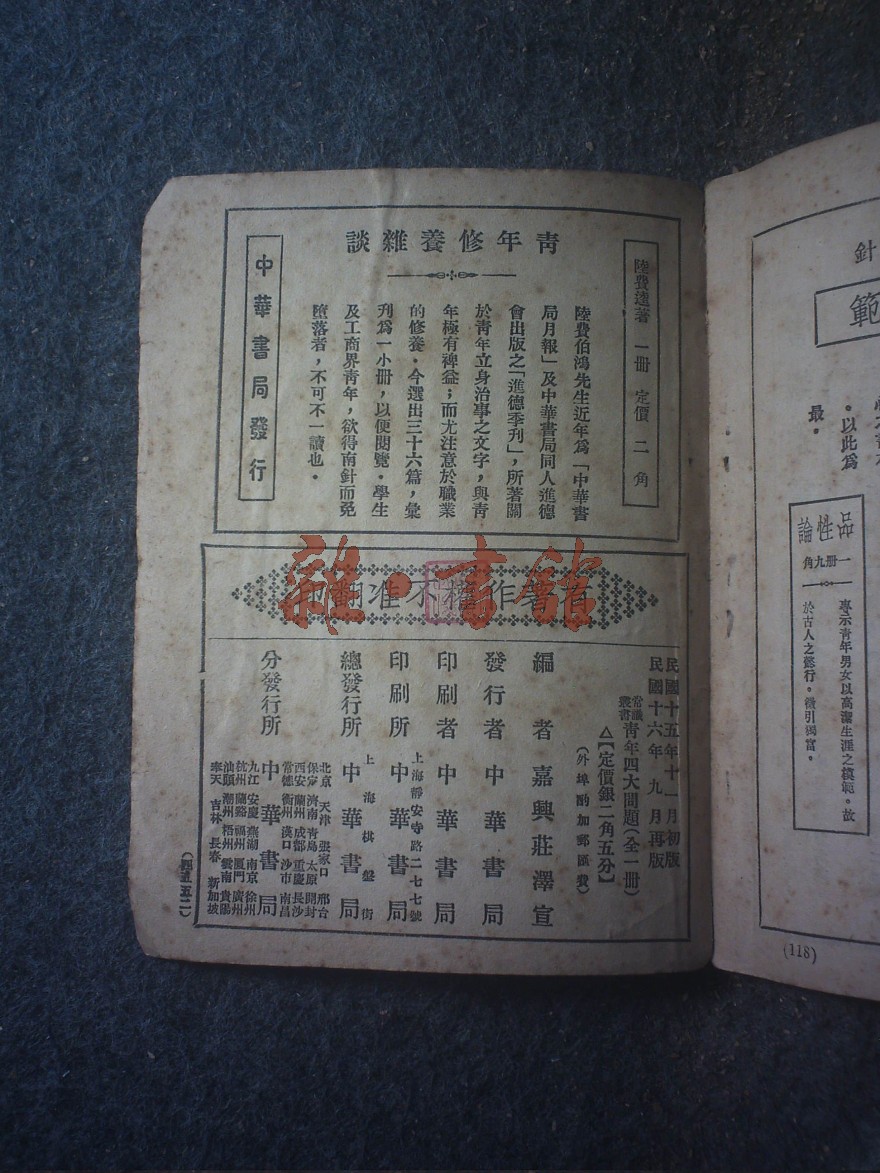 青年修養雜談
陸費逵著　一冊　定價　二　角
陸費伯鴻先生近年爲「中華書
局月報」及中華書局同人進德
會出版之「進德季刊」，所著關
於青年立身治事之文字，與青
年極有裨益；而尤注意於職業
的修養．今選出三十六篇，彙
刊爲一小冊，以便閱覽．學生
及工商界青年，欲得南針而免
墮落者，不可不一讀也．
中華書局發行
有著作權不准翻印
民國十五年十一月初版
民國十六年九月再版
常識叢書
青年四大問題（全一冊）
△【定價銀二角五分】
（外埠酌加郵匯費）
編者　嘉興莊澤宣
發行者　中華書局
印刷者　中華書局
上海靜安寺路二七七號
印刷所　中華書局
上海棋盤街
總發行所　中華書局
分發行所　中華書局
北京　天津　張家口　邢台
保定　濟南　青島　太原　開封
西安　蘭州　成都　重慶　長沙
常德　衡州　漢口　沙市　南昌
九江　安慶　蕪湖　南京　徐州
杭州　蘭谿　福州　廈門　廣州
汕頭　潮州　梧州　雲南　貴陽
奉天　吉林　長春　新加坡
雜·書館
針
範
。以此爲
最．
品性論
一冊九角
專示青年男女以高潔生涯之模範。故
於古人之懿行。徵引獨富。
(118)